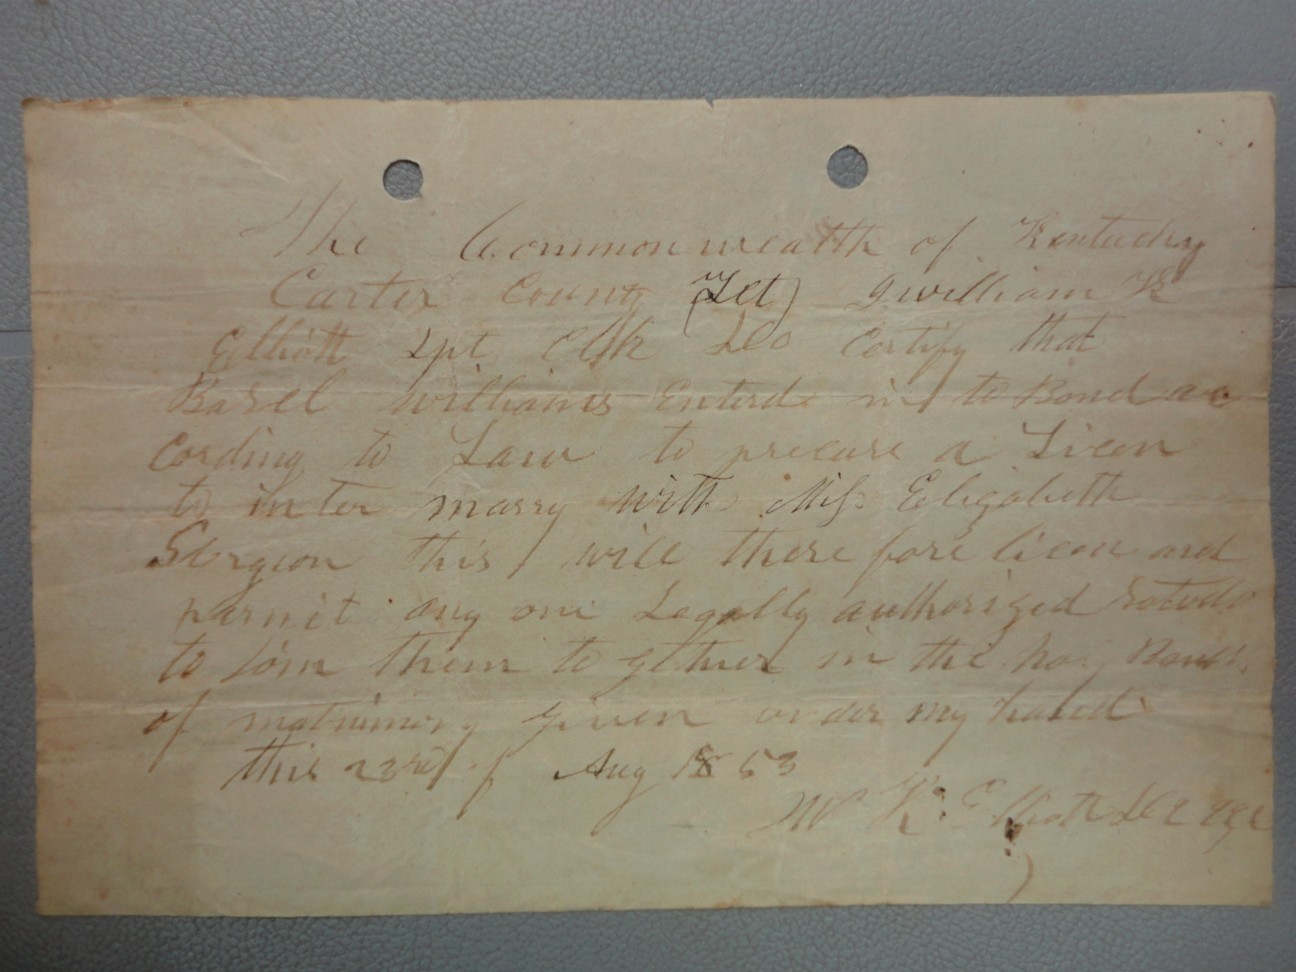 The Commonwealth of Kentucky
Carter County (Sct) I william K
Elliott Dpt Clk Do Certify that
Bazel williams Enterd in to Bond ac
cording to Law to precure a Licen
to inter marry with Miss Elizabeth
Sergion this will there fore licen and
parmit any one Legally authorized so to do
to Join them to gether in the hoy Bonds
of matrimony given under my hand
this 23rd of Aug 1853
W K Elliott